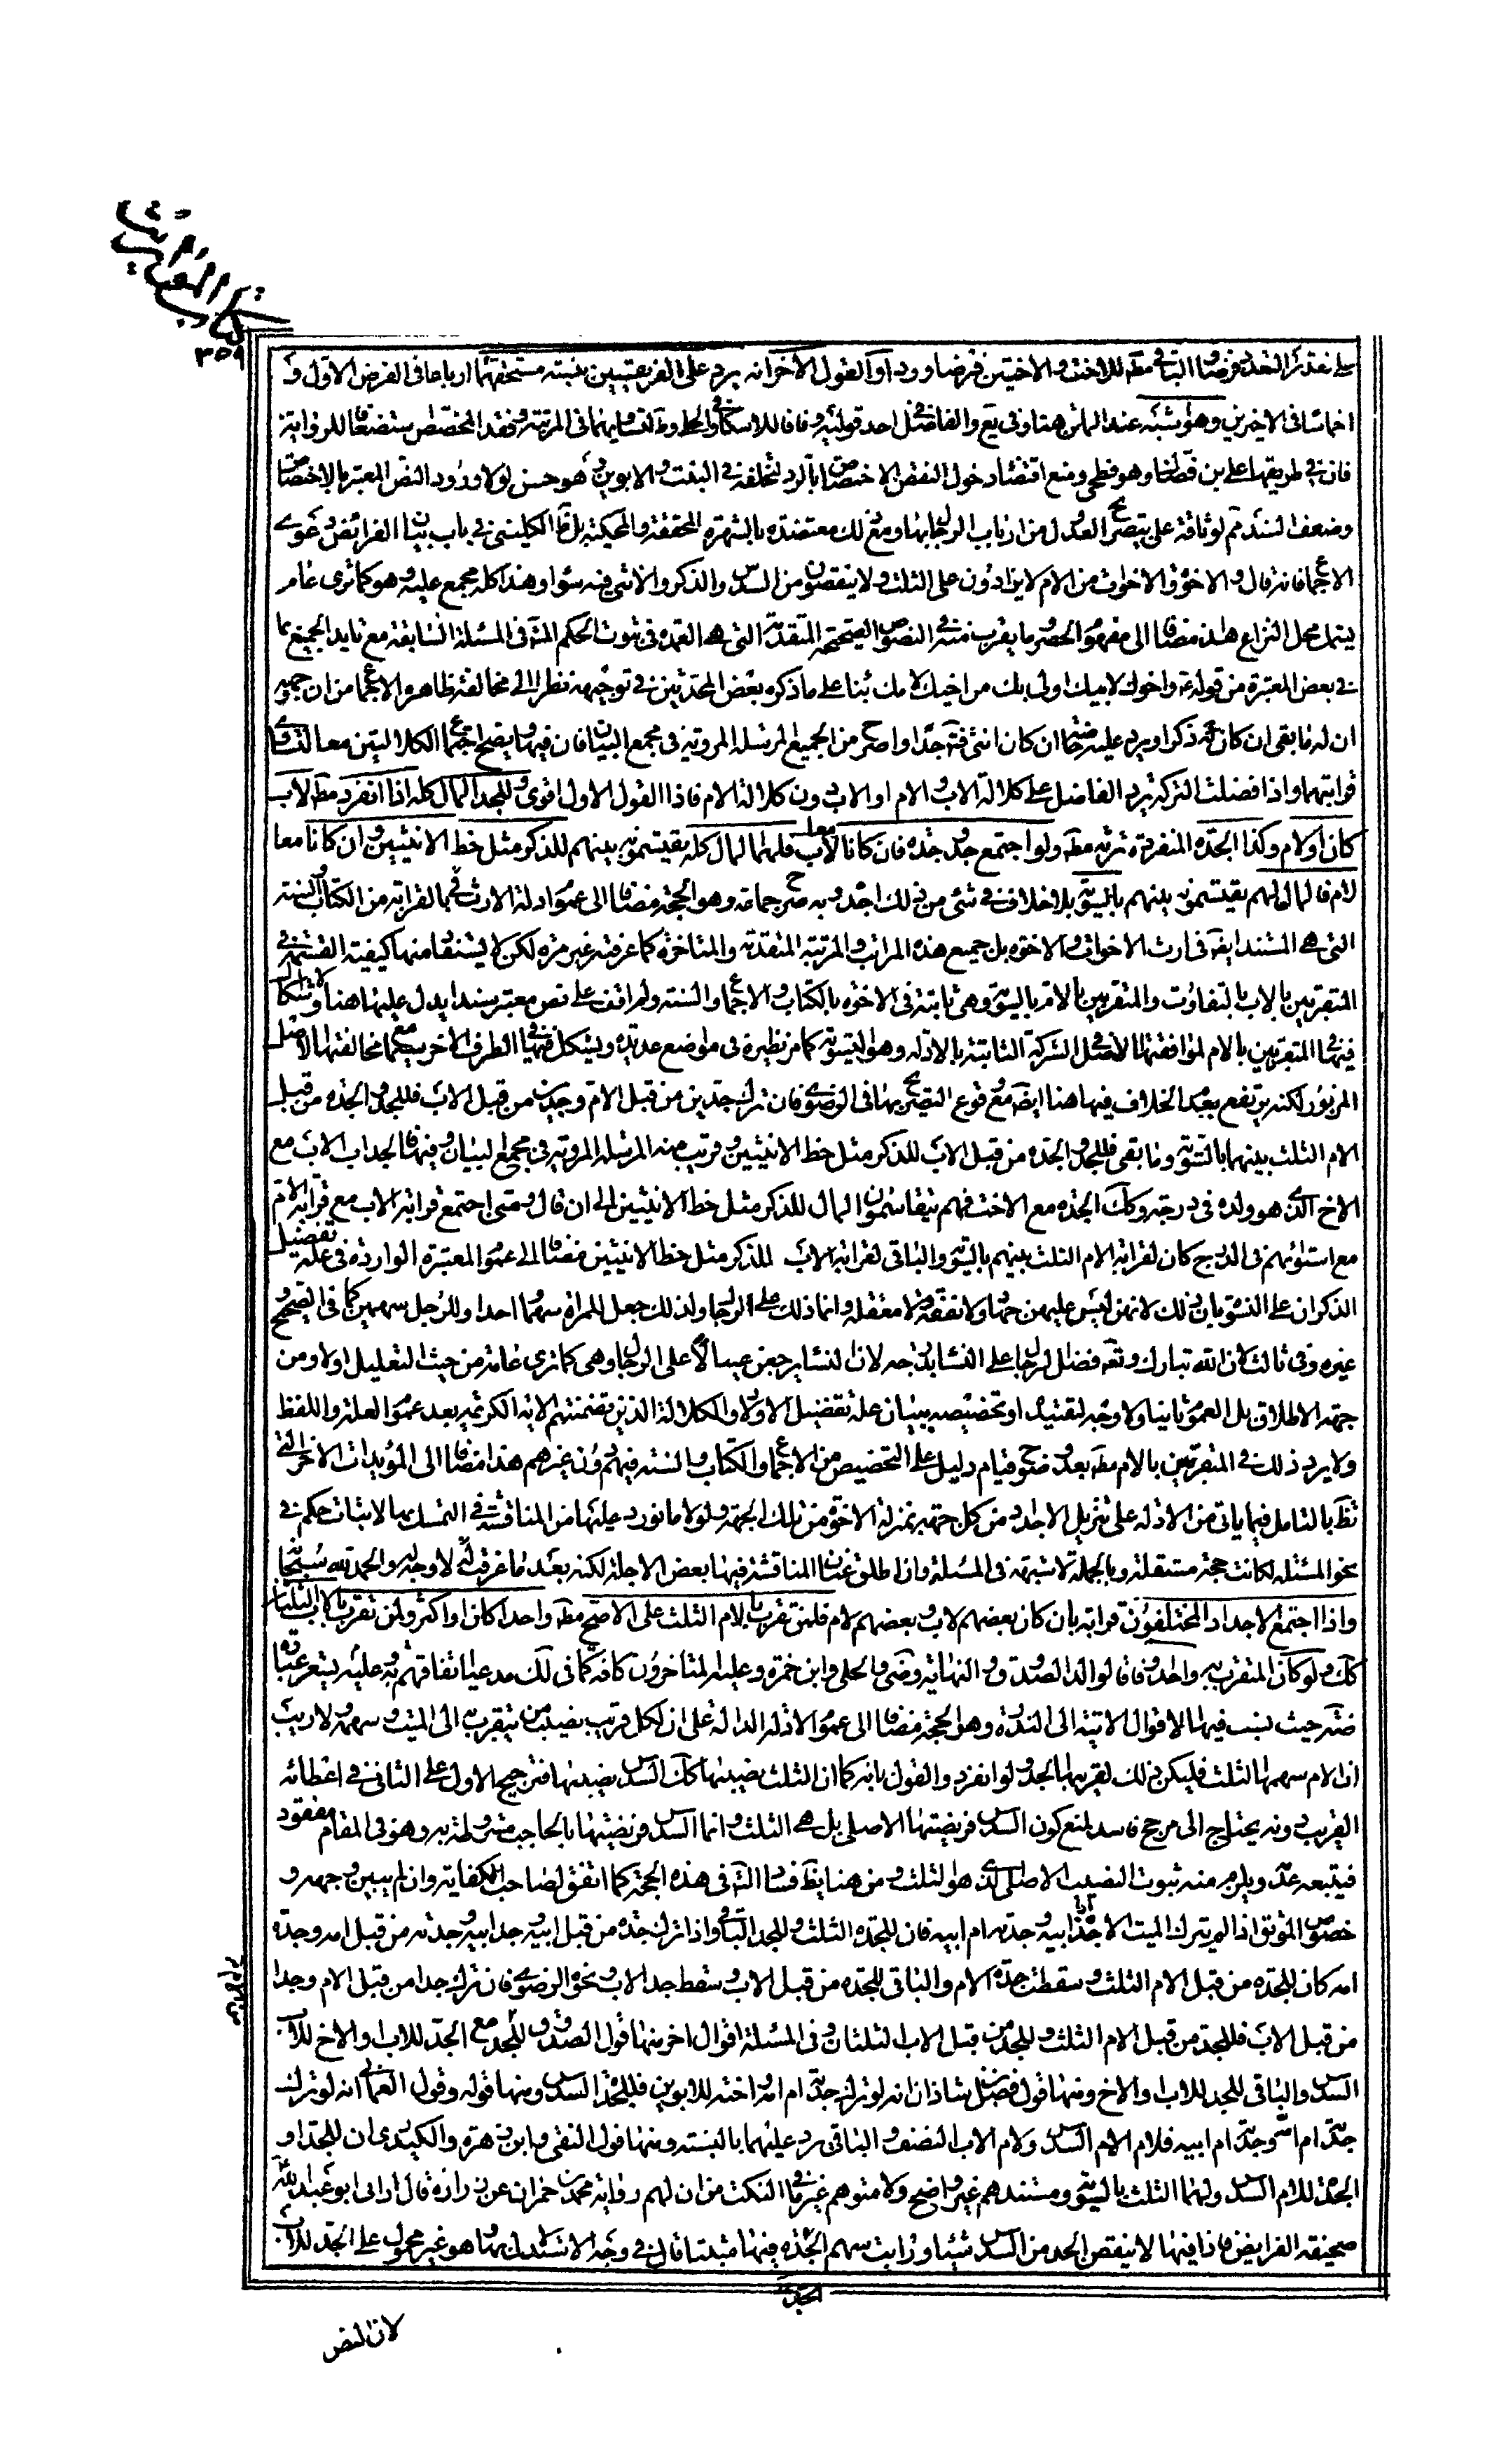 كتاب الميراث
٣٥٩
على تقدير التعدد فرضا والباقى مطه للاخت او الاختين فرضا وردا والقول الاخر انه يرد على الفريقين بنسبة مستحقهما ارباعا فى الفرض الاول و
اخماسا فى الاخيرين وهو اشبه عند الماتن هنا وفى يع والفاضل فى احد قوليه وفاقا للاسكافى والحلى وط لتساويهما فى المرتبة وفقد المخصص استضعافا للرواية
فان فى طريقها على بن فضال وهو فطحى ومنع اقتضاء دخول النقص الاختصاص بالرد لتخلفه فى البنت والابوين وهو حسن لولا ورود النص المعتبر بالاختصاص
وضعف السند مم لوثاقة على بتصريح العدول من ارباب الرجال بها ومع ذلك معتضده بالشهرة المحققة والمحكية بل ظ الكلينى فى باب بيان الفرائض دعوى
الاجماع فانه قال والاخوة والاخوات من الام لا يزادون على الثلث ولا ينقصون من السدس والذكر والانثى فيه سواء وهذا كله مجمع عليه وهو كما ترى عام
يشمل محل النزاع هذا مضافا الى مفهوم الحصر وما يقرب منه فى النصوص الصحيحة المتقدمة التى هى العمدة فى ثبوت الحكم المتقدم فى المسئلة السابقة مع تايد الجميع بما
فى بعض المعتبرة من قوله ع واخوك لابيك اولى بك من اخيك لامك بناء على ما ذكره بعض المحدثين فى توجيهه نظرا الى مخالفة ظاهره الاجماع من ان
ان له ما بقى ان كان ذكرا ويرد عليه خاصة ان كان انثى فتدبر جدا واصرح من الجميع المرسلة المروية فى مجمع البيان فان فيها ويصح اجتماع الكلالتين معا لتساوى
قرابتهما واذا فضلت التركة يرد الفاضل على كلالة الاب والام او الاب دون كلالة الام فاذا القول الاول اقوى وللجد المال كله اذا انفرد مطه لاب
كان او لام وكذا الجدة المنفردة ترثه مطه ولو اجتمع جد وجدة فان كانا لاب معا فلهما المال كله يقتسمونه بينهم للذكر مثل حظ الانثيين وان كانا معا
لام فالمال لهم يقتسمونه بينهم بالسوية بلا خلاف فى شئ من ذلك اجده وبه صرح جماعة وهو الحجة مضافا الى عموم ادلة الارث بالقرابة من الكتاب والسنة
التى هى المستند ايضا فى ارث الاخوات والاخوة بل جميع هذه المراتب والمرتبة المتقدمة والمتاخرة كما عرفته غير مرة لكن لا يستفاد منها كيفية القسمة فى
المتقربين بالاب بالتفاوت والمتقربين بالام بالسوية وهى ثابتة فى الاخوة بالكتاب والاجماع والسنة ولم اقف على نص معتبر سندا يدل عليها هنا ولا اشكال
فيها فى المتقربين بالام لموافقتها لاصل الشركة الثابتة بالادلة وهو التسوية كما مر نظيره فى مواضع عديدة ويشكل فيها فى الطرف الاخر مع مخالفتها الاصل
المزبور لكنه يرتفع بعد الخلاف فيها هنا ايضا مع وقوع التصريح بها فى الرضوى فان ترك جدين من قبل الام وجدين من قبل الاب فللجد والجدة من قبل
الام الثلث بينهما بالسوية وما بقى فللجد والجدة من قبل الاب للذكر مثل حظ الانثيين وقريب منه المرسلة المروية فى مجمع البيان وفيها فالجد اب الاب مع
الاخ الذى هو ولده فى درجة وكك الجدة مع الاخت فهم يتقاسمون المال للذكر مثل حظ الانثيين الى ان قال ومتى اجتمع قرابة الاب مع قرابة الام
مع استوائهم فى الدرج كان لقرابة الام الثلث بينهم بالسوية والباقى لقرابة الاب للذكر مثل حظ الانثيين مضافا الى عموم المعتبرة الواردة فى علة تفضيل
الذكران على النسوة بان ذلك لانهن ليس عليهن جهاد ولا نفقة ولا معقلة وانما ذلك على الرجال ولذلك جعل للمراة سهما واحدا وللرجل سهمين كما فى الصحيح و
غيره وفى ثالث كان الله تبارك وتعالى فضل الرجال على النساء بدرجة لان النساء يرجعن عيالا على الرجال وهى كما ترى عامة من حيث التعليل اولا ومن
جهة الاطلاق بل العموم ثانيا ولا وجه لتقييده او تخصيصه ببيان علة تفضيل الاولاد والكلالة الذين تضمنتهم الاية الكريمة بعد عموم العلة واللفظ
ولا يرد ذلك فى المتقربين بالام مطه بعد وضوح قيام دليل على التخصيص من الاجماع والكتاب والسنة فيهم دون غيرهم هذا مضافا الى المؤيدات الاخر التى
تظهر بالتامل فيما ياتى من الادلة على تنزيل الاجداد من كل جهة بمنزلة الاخوة من تلك الجهة ولولا ما نورد عليها من المناقشة فى التمسك بها لاثبات حكم فى
نحو المسئلة لكانت حجة مستقلة وبالجملة لا شبهة فى المسئلة وان اطلق عنان المناقشة فيها بعض الاجلة لكنه بعد ما عرفت لا وجه له والحمد لله سبحانه
واذا اجتمع الاجداد المختلفون قرابة بان كان بعضهم لاب وبعضهم لام فلمن تقرب بالام الثلث على الاصح مطه واحدا كان او اكثر ولمن تقرب بالاب الثلثان
كك ولو كان المتقرب به واحدا وفاقا لوالد الصدوق والنهاية وضى والحلى وابن حمزة وعليه المتاخرون كافة كما فى لك مدعيا اتفاقهم به وعليه يشعر عبارة
ضه حيث نسب فيها الاقوال الاتية الى الندور وهو الحجة مضافا الى عموم الادلة الدالة على ان لكل قريب نصيب من يتقرب به الى الميت وسهمه ولا ريب
ان الام سهمها الثلث فليكن ذلك لقريبها الجد ولو انفرد والقول بانه كما ان الثلث نصيبها كك السدس نصيبها فترجيح الاول على الثانى فى اعطائه
القريب دونه يحتاج الى مرجح فاسد لمنع كون السدس فريضتها الاصلى بل هى الثلث وانما السدس فريضتها بالحاجب مشروطة به وهو فى المقام مفقود
فيتبعه عدمه ويلزم منه ثبوت النصيب الاصلى الذى هو الثلث ومن هنا يظهر فساد الثانى فى هذه الحجة كما اتفق لصاحب الكفاية وان لم يبين وجهه و
خصوص الموثق اذا لم يترك الميت الا جده ابا ابيه وجدته ام ابيه فان للجدة الثلث وللجد الباقى واذا ترك جده من قبل ابيه وجد ابيه وجدته من قبل امه وجدة
امه كان للجدة من قبل الام الثلث وسقطت جدة الام والباقى للجدة من قبل الاب وسقط جد الاب ونحوه الرضوى فان ترك جدا من قبل الام وجدا
من قبل الاب فللجد من قبل الام الثلث وللجد من قبل الاب الثلثان وفى المسئلة اقوال اخر منها قول الصدوق للجد مع الجد للاب والاخ للاب
السدس والباقى للجد للاب والاخ ومنها قول فضل بن شاذان انه لو ترك جدته ام امه واخته للابوين فللجدة السدس ومنها قوله وقول العمانى انه لو ترك
جدته ام امه وجدته ام ابيه فلام الام السدس ولام الاب النصف والباقى رد عليهما بالنسبة ومنها قول التقى وابن زهرة والكيدرى ان للجد او
الجدة للام السدس ولهما الثلث بالسوية ومستندهم غير واضح ولا متوهم غير ما فى النكت من ان لهم رواية محمد بن حمران عن زرارة قال ارانى ابو عبد الله
صحيفة الفرايض فاذا فيها لا ينقص الجد من السدس شيئا ورايت سهم الجدة فيها مثبتا قال فى وجه الاستدلال بها وهو غير محمول على الجد للاب
لان النص